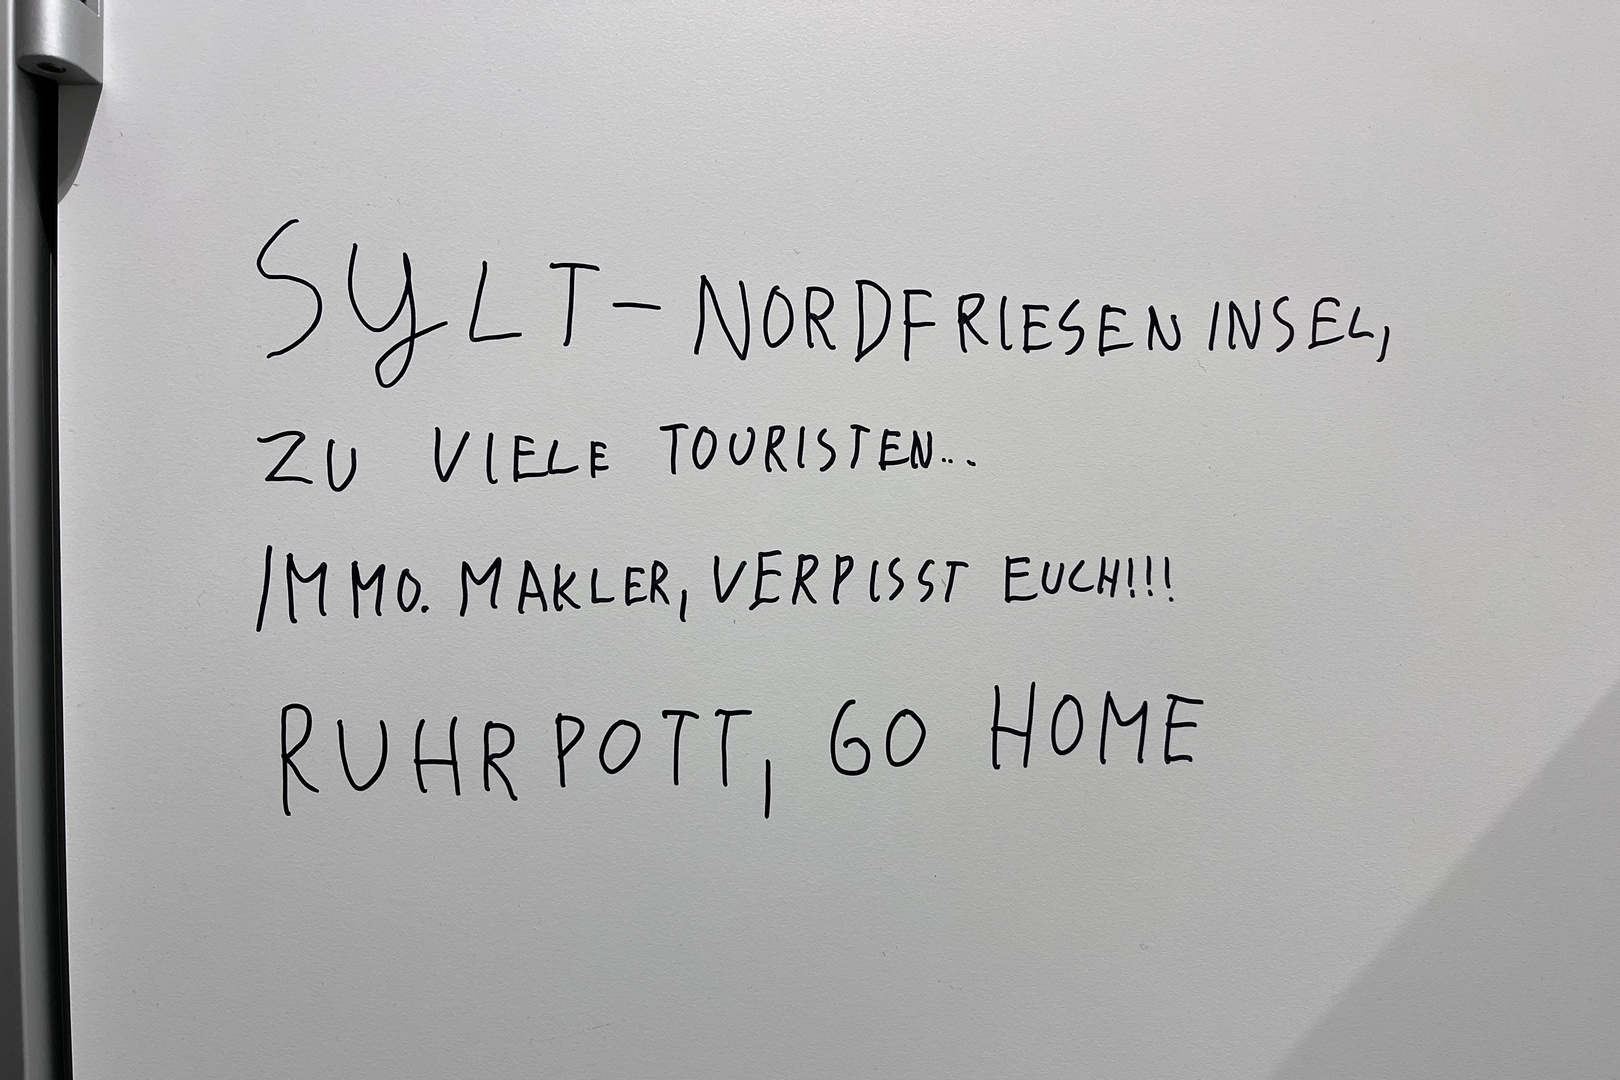 SYLT – NORDFRIESENINSEL,
ZU VIELE TOURISTEN...
IMMO. MAKLER, VERPISST EUCH!!!
RUHRPOTT, GO HOME